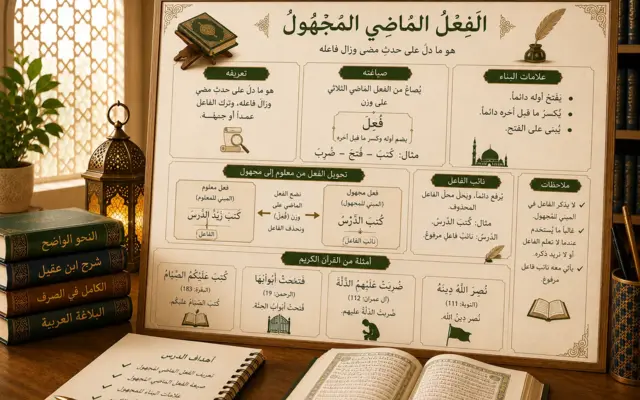 الفِعْلُ المَاضِي المَجْهُولُ
هو ما دلّ على حدثٍ مضى وزال فاعله
تعريفه
هو ما دلّ على حدثٍ مضى
وزال فاعله، وترك الفاعل
عمداً أو
صياغته
يُصاغُ من الفعل الماضي الثلاثي
على وزن
فُعِلَ
بضم أوله وكسر ما قبل آخره
مثال: كُتِبَ – فُتِحَ – ضُرِبَ
علامات البناء
يُفتحُ أوله دائماً.
يُكسرُ ما قبل آخره دائماً.
يُبنى على الفتح.
تحويل الفعل من معلوم إلى مجهول
فعل معلوم
(المبني للمعلوم)
كَتَبَ زَيْدٌ الدَّرسَ
الفاعل
نضع الفعل
الماضي على
وزن (فُعِلَ)
ونحذف الفاعل
فعل مجهول
(المبني للمجهول)
كُتِبَ الدَّرْسُ
نائب الفاعل
نائب الفاعل
يُرفع دائماً، ويحلّ محلّ الفاعل
المحذوف.
مثال: كُتبَ الدَّرسُ.
الدّرسُ: نائب فاعلٍ مرفوع.
ملاحظات
لا يذكر الفاعل في
المبني للمجهول.
غالباً ما يُستخدم
عندما لا تعلم الفاعل
أو لا تريد ذكره.
يأتي معه نائب فاعل
مرفوع.
أمثلة من القرآن الكريم
كُتِبَ عَلَيْكُمُ الصِّيَامُ
(البقرة: 183)
كُتبَ الصّيامُ عليكم.
فَتَحَتْ أَبْوَابُهَا
(الرحمن: 19)
فُتحتْ أبوابُ الجنّة.
ضُرِبَتْ عَلَيْهِمُ الذِّلَّةُ
(آل عمران: 112)
ضُربتْ الذلّة عليهم.
نُصِرَ اللهُ دِينَهُ
(التوبة: 111)
نُصر دينُ الله.
النحو الواضح
شرح ابن عقيل
الكامل في الصرف
البلاغة العربية
أهداف الدرس
تعريف الفعل الماضي المجهول
صيغة الفعل الماضي المجهول
علامات البناء للمجهول